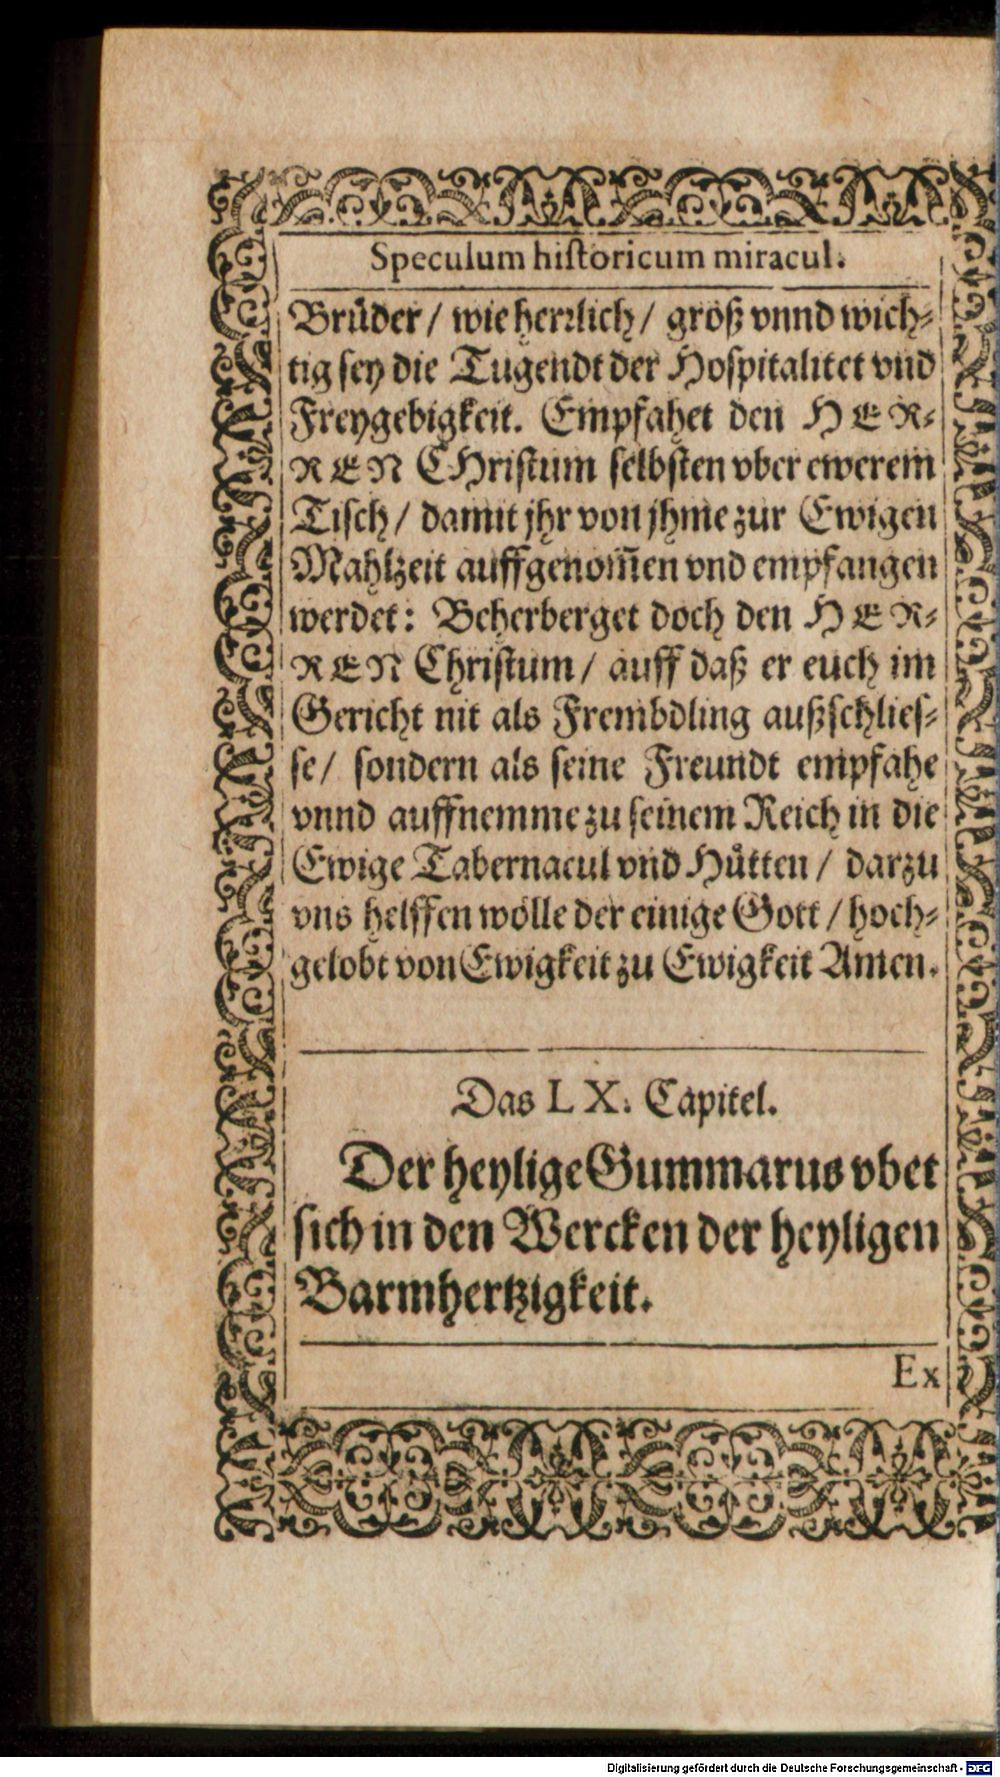 Speculum historicum miracul.
Brüder / wie herrlich / groß vnnd wich-
tig sey die Tugendt der Hospitalitet vnd
Freygebigkeit. Empfahet den HER-
REN CHristum selbsten vber ewerem
Tisch / damit jhr von jhme zur Ewigen
Mahlzeit auffgenom̃en vnd empfangen
werdet: Beherberget doch den HER-
REN Christum / auff daß er euch im
Gericht nit als Frembdling außschlies-
se / sondern als seine Freundt empfahe
vnnd auffnemme zu seinem Reich in die
Ewige Tabernacul vnd Hütten / darzu
vns helffen wölle der einige Gott / hoch-
gelobt von Ewigkeit zu Ewigkeit Amen.
Das LX. Capitel.
Der heylige Gummarus vbet
sich in den Wercken der heyligen
Barmhertzigkeit.
Ex
Digitalisierung gefördert durch die Deutsche Forschungsgemeinschaft - DFG